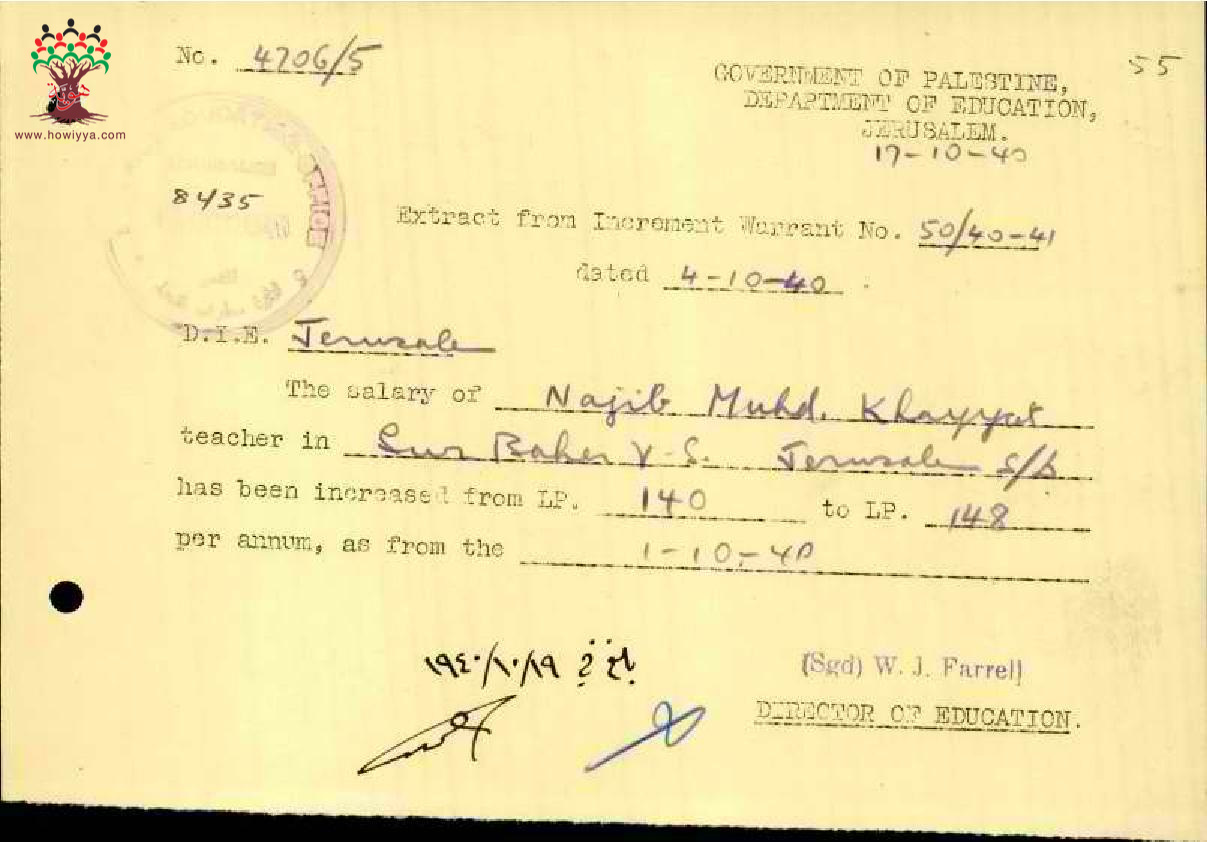 www.howiyya.com
No. 4706/5
55
GOVERNMENT OF PALESTINE,
DEPARTMENT OF EDUCATION,
JERUSALEM.
17-10-40
8435
OFFICE
Extract from Increment Warrant No. 50/40-41
dated 4-10-40.
D.I.E. Jerusalem
The salary of Najib Muhd. Khayyat
teacher in Sur Baher V.S. Jerusalem S/D
has been increased from LP. 140 to LP. 148
per annum, as from the 1-10-40
١٩٤٠/١٠/١٩
(Sgd) W. J. Farrell
DIRECTOR OF EDUCATION.